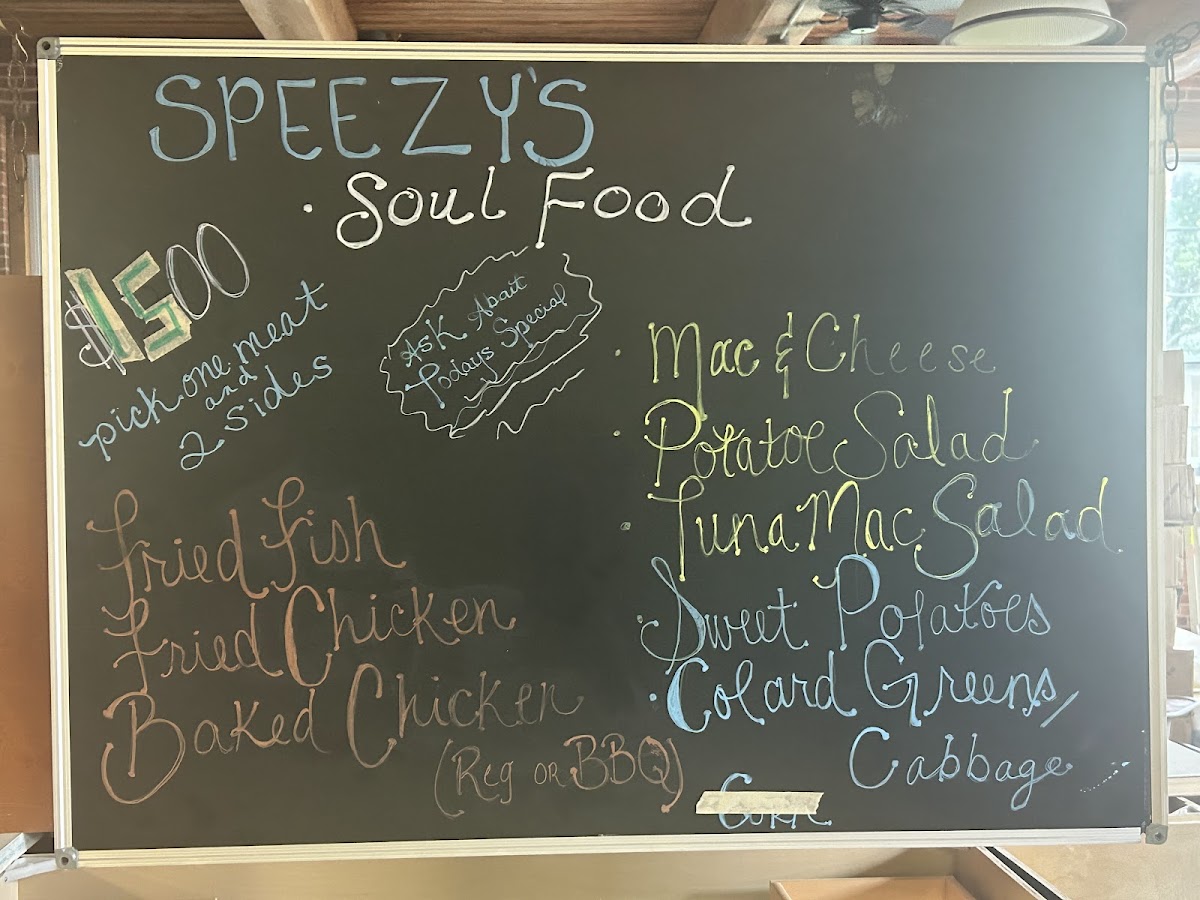 SPEEZY'S
· Soul Food
$1500
pick one meat
and
2 sides
Ask About
Todays Special
Fried Fish
Fried Chicken
Baked Chicken
(Reg OR BBQ)
· Mac & Cheese
· Potatoe Salad
Tuna Mac Salad
· Sweet Potatoes
· Colard Greens/
Cabbage